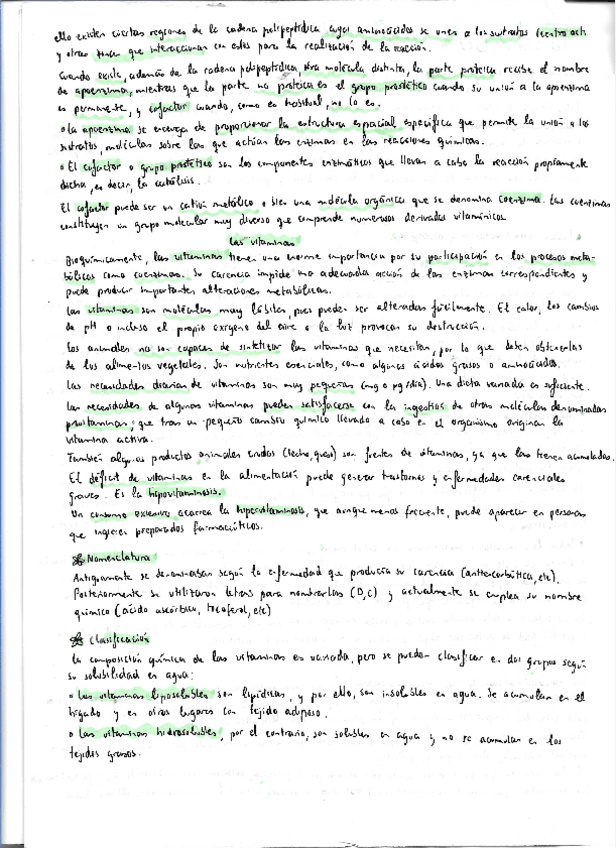 ello existen ciertas regiones de la cadena polipeptídica cuyos aminoácidos se unen a los sustratos (centro acti
y otras tienen que interaccionan con estos para la realización de la reacción.
Cuando existe, además de la cadena polipeptídica, otra molécula distinta, la parte proteica recibe el nombre
de apoenzima, mientras que la parte no proteica es el grupo prostético cuando su unión a la apoenzima
es permanente, y cofactor cuando, como es habitual, no lo es.
• La apoenzima se encarga de proporcionar la estructura espacial específica que permite la unión a los
sustratos, moléculas sobre las que actúan las enzimas en las reacciones químicas.
• El cofactor o grupo prostético son los componentes enzimáticos que llevan a cabo la reacción propiamente
dicha, es decir, la catálisis.
El cofactor puede ser un catión metálico o bien una molécula orgánica que se denomina coenzima. Las coenzimas
constituyen un grupo molecular muy diverso que comprende numerosos derivados vitamínicos
Las vitaminas
Bioquímicamente, las vitaminas tienen una enorme importancia por su participación en los procesos meta-
bólicos como coenzimas. Su carencia impide una adecuada acción de las enzimas correspondientes y
puede producir importantes alteraciones metabólicas.
Las vitaminas son moléculas muy lábiles, pues pueden ser alteradas fácilmente. El calor, los cambios
de pH o incluso el propio oxígeno del aire o la luz provocan su destrucción.
Los animales no son capaces de sintetizar las vitaminas que necesitan, por lo que deben obtenerlas
de los alimentos vegetales. Son nutrientes esenciales, como algunos ácidos grasos o aminoácidos.
Las necesidades diarias de vitaminas son muy pequeñas (mg o µg/día). Una dieta variada es suficiente.
Las necesidades de algunas vitaminas pueden satisfacerse con la ingestión de otras moléculas denominadas
provitaminas, que tras un pequeño cambio químico llevado a cabo en el organismo originan la
vitamina activa.
También algunos productos animales crudos (leche, queso) son fuentes de vitaminas, ya que las tienen acumuladas.
El déficit de vitaminas en la alimentación puede generar trastornos y enfermedades carenciales
graves. Es la hipovitaminosis.
Un consumo excesivo acarrea la hipervitaminosis, que aunque menos frecuente, puede aparecer en personas
que ingieren preparados farmacéuticos.
Nomenclatura
Antiguamente se denominaban según la enfermedad que producía su carencia (antiescorbútica, etc).
Posteriormente se utilizaron letras para nombrarlas (D,C) y actualmente se emplea su nombre
químico (ácido ascórbico, tocoferol, etc)
Clasificación
La composición química de las vitaminas es variada, pero se pueden clasificar en dos grupos según
su solubilidad en agua:
• Las vitaminas liposolubles son lipídicas, y por ello, son insolubles en agua. Se acumulan en el
hígado y en otros lugares con tejido adiposo.
• Las vitaminas hidrosolubles, por el contrario, son solubles en agua y no se acumulan en los
tejidos grasos.